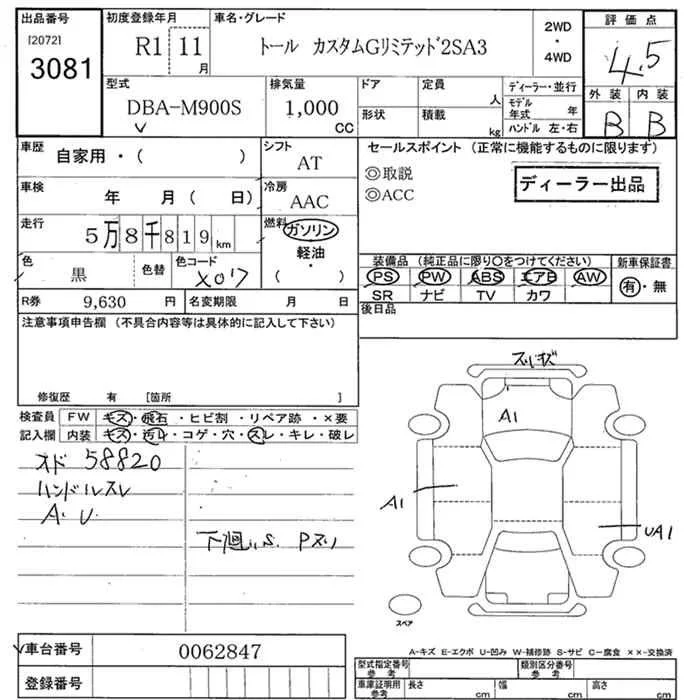 出品番号 初度登録年月 車名・グレード 2WD・4WD 評価点
[2072]
3081 R1 11月 トール カスタムGリミテッド2SA3 4.5
型式 排気量 ドア 定員 人 ディーラー・並行 外装 内装
DBA-M900S 1,000 CC 形状 積載 kg モデル年式 年 B B
ハンドル 左・右
車歴 自家用・( ) シフト AT セールスポイント (正常に機能するものに限ります)
◎取説 ディーラー出品
車検 年 月( 日) 冷房 AAC ◎ACC
走行 5万8千819km 燃料 ガソリン
軽油・
( )
色 黒 色替 色コード X07 装備品 (純正品に限り〇をつけてください) 新車保証書
PS PW ABS エアB AW 有・無
SR ナビ TV カワ
R券 9,630 円 名変期限 月 日 後日品
注意事項申告欄 (不具合内容等は具体的に記入して下さい)
修復歴 有 [箇所 ]
検査員 FW キズ・飛石・ヒビ割・リペア跡・×要
記入欄 内装 キズ・汚レ・コゲ・穴・スレ・キレ・破レ
オド 58820
ハンドルスレ
A. U
下廻り、S. Pズリ
スリキズ
A1
A1
UA1
スペア
A-キズ E-エクボ U-凹み W-補修跡 S-サビ C-腐食 ××-交換済
車台番号 0062847
登録番号
型式指定番号 参考 類別区分番号 参考
車庫証明用 参考 長さ cm 幅 cm 高さ cm